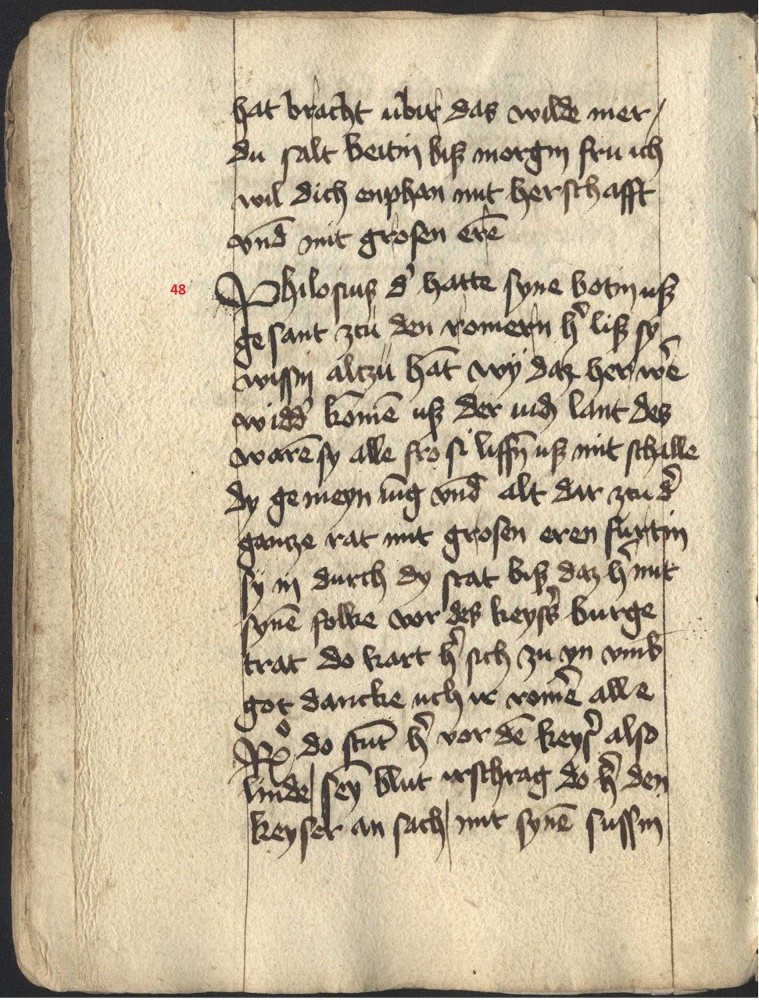 hat bracht ubir das wilde mer /
du salt beitin biß morgin fru ich
wil dich enphan mit herschafft
vnd̄ mit grosen erē
48
Philosius d᾽ hatte syne botin uß
ge sant zcu den romern h᾽ liß sy
wissin alczu hāt wy daz her wē᾽
widd᾽ komē uß der lant des
warē sy alle fro si liffn̄ uß mit schalle
dy ge meyn iūg vnd̄ alt dar zcu d᾽
gantze rat mit grosen eren furtin
sy in durch dy stat biß daz h᾽ mit
synē folke vor des keys᾽s burge
trat do kart h᾽ sich zu yn vmb
got dancke uch ir romē᾽ alle
do stūt h᾽ vor dē keys᾽ also
linde / seȳ blut irschrag do h᾽ den
keyser an sach / mit synē sussin